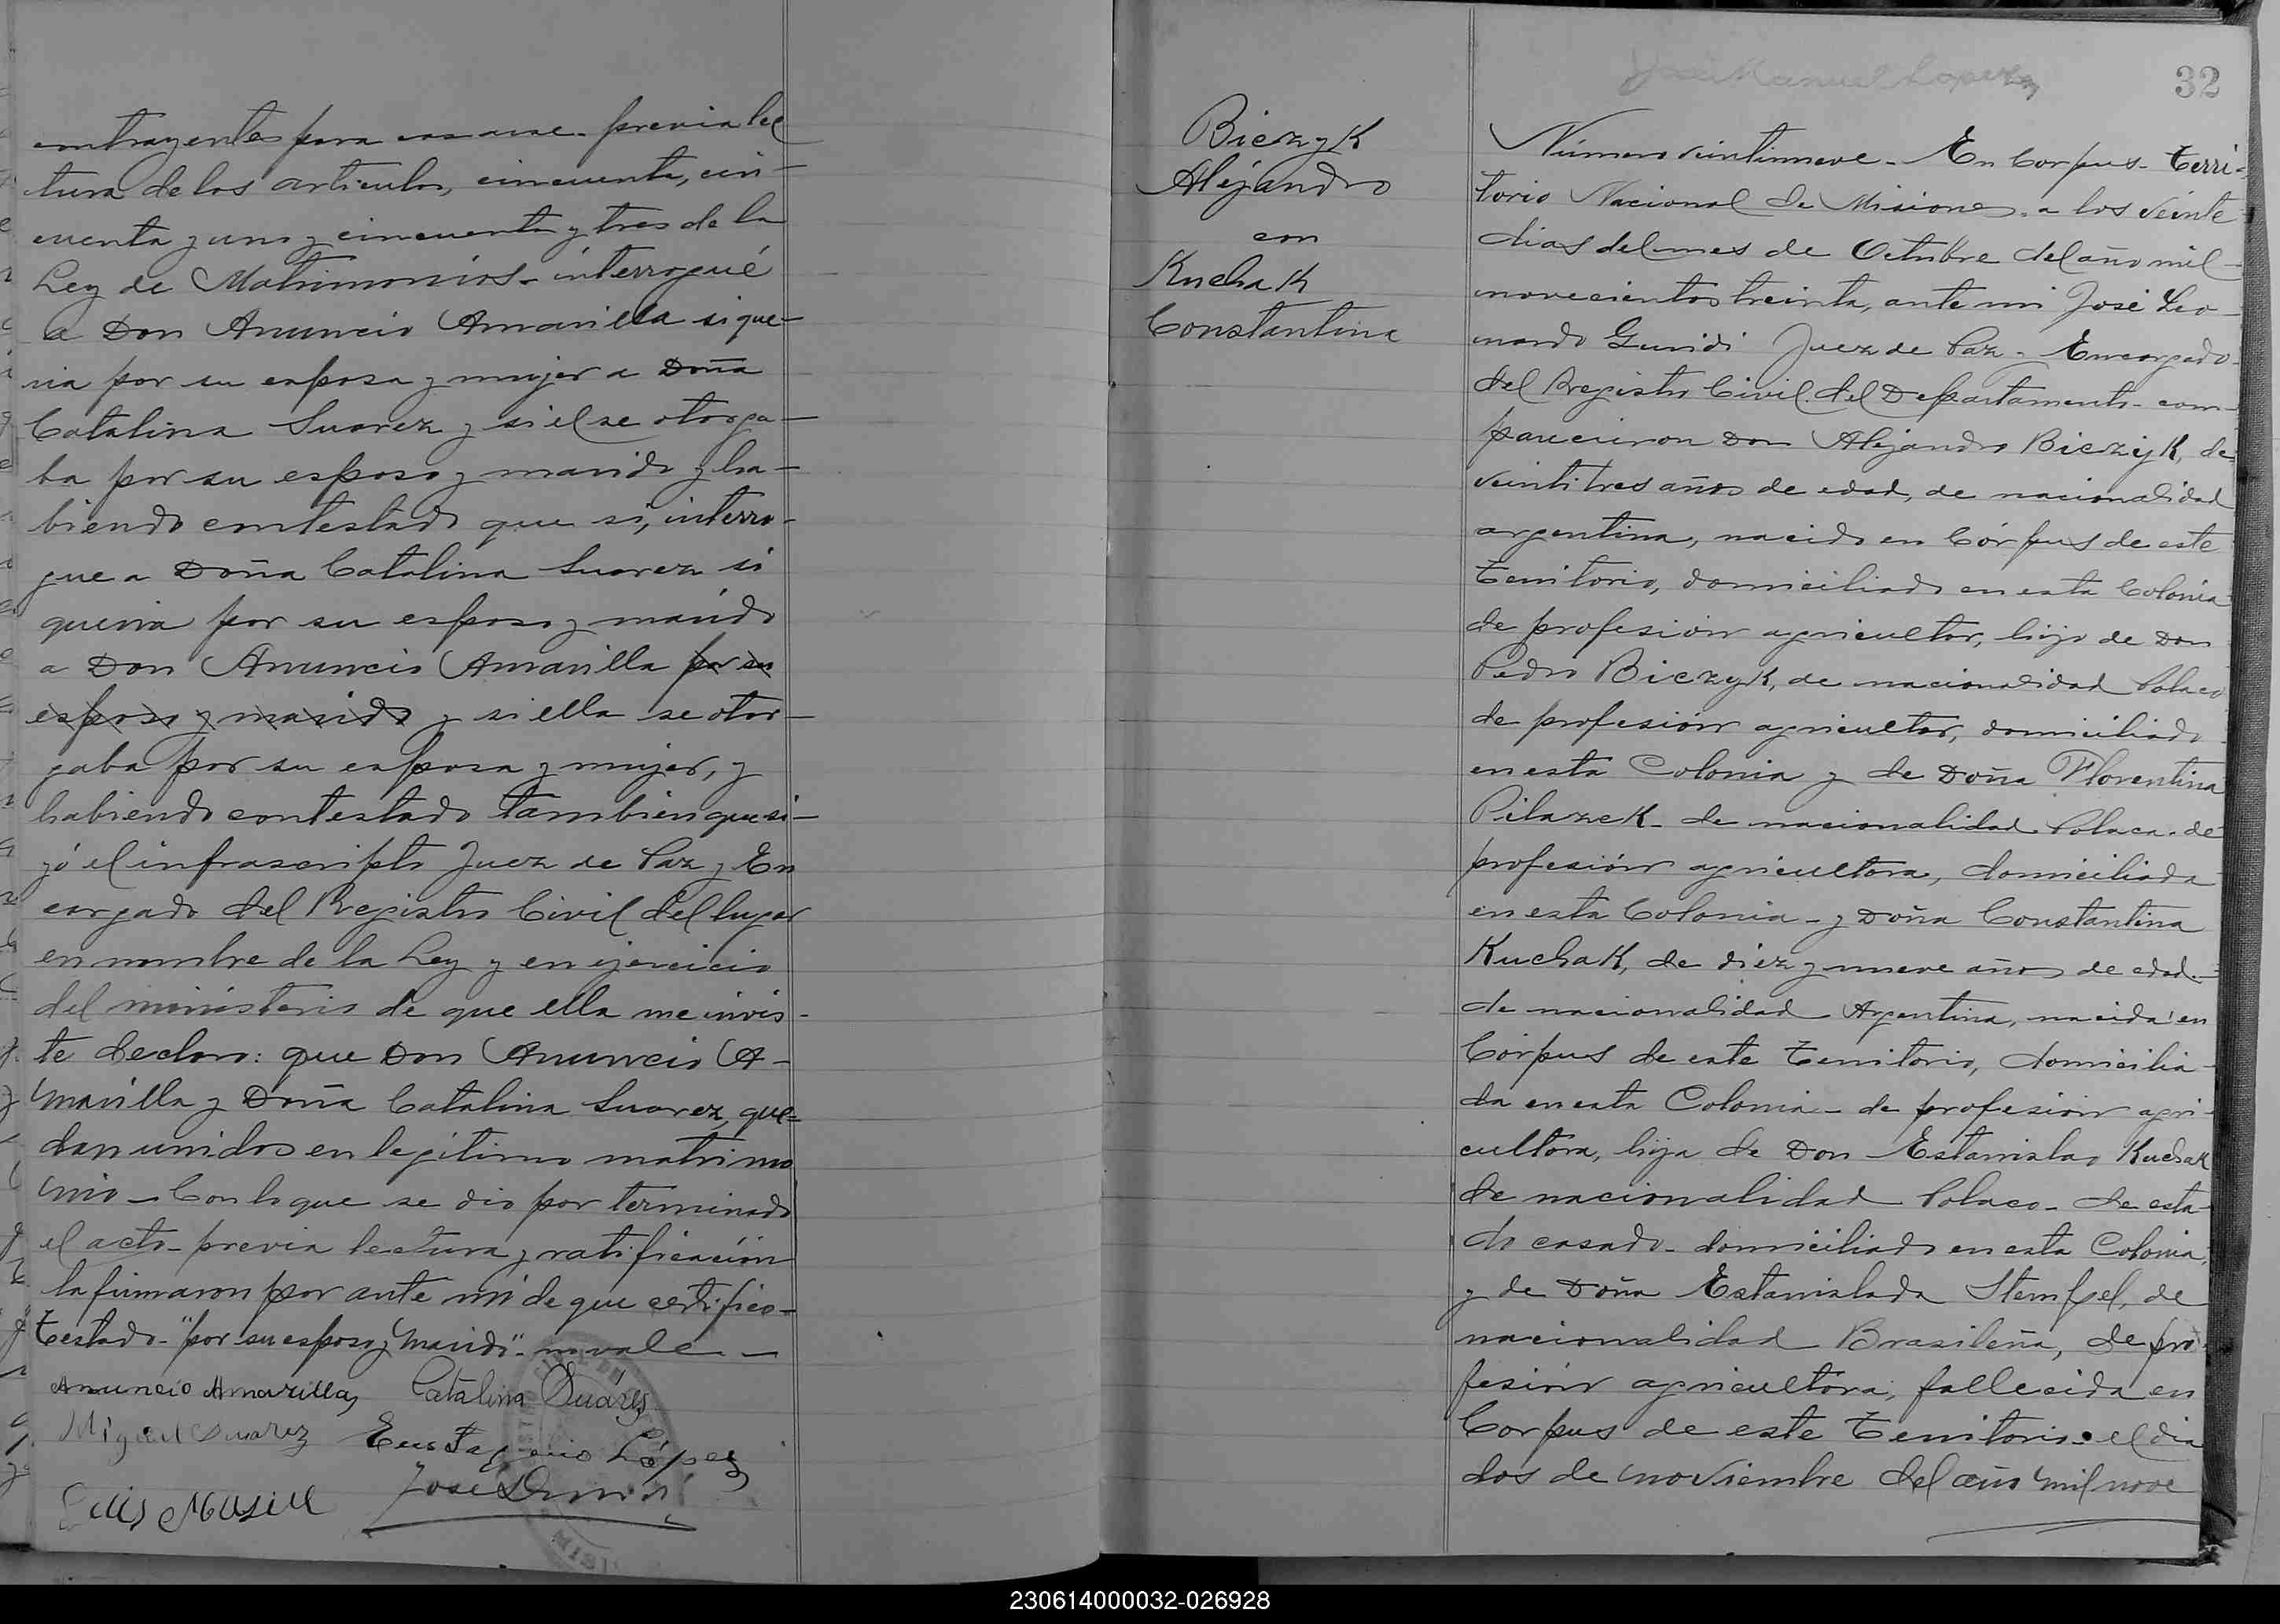 contrayentes para casarse. previa lec
tura de los articulos, cincuenta, cin-
cuenta y uno y cincuenta y tres de la
Ley de Matrimonios - interrogué
a Don Anuncio Amarilla si que-
ria por su esposa y mujer a Doña
Catalina Suarez y si el se otorga-
ba por su esposo y marido y ha-
biendo contestado que si, interro-
gue a Doña Catalina Suarez si
queria por su esposo y marido
a Don Anuncio Amarilla por su
esposo y marido y si ella se otor-
gaba por su esposa y mujer, y
habiendo contestado tambien que si-
yó el infrascripto Juez de Paz y En
cargado del Registro Civil del lugar
en nombre de la Ley y en ejercicio
del ministerio de que ella me invis-
te declaro: que Don Anuncio A-
marilla y Doña Catalina Suarez, que-
dan unidos en legitimo matrimo
nio - Con lo que se dio por terminado
el acto - previa lectura y ratificación
la firmaron por ante mi de que certifico-
Testado - "por su esposo y marido" - no vale -
Anuncio Amarilla Catalina Suárez
Miguel Suarez Eustaquio López
Luis Musill José L Guridi
José Manuel Lopez
32
Biezyk
Alejandro
con
Kuchak
Constantina
Número veintinueve - En Corpus - Terri-
torio Nacional de Misiones. a los veinte
dias del mes de Octubre del año mil
novecientos treinta, ante mi José Leo-
nardo Guridi Juez de Paz - Encargado
del Registro Civil del Departamento - com-
parecieron Don Alejandro Biezyk, de
veintitres años de edad, de nacionalidad
argentina, nacido en Córpus de este
Territorio, domiciliado en esta Colonia
de profesión agricultor, hijo de Don
Pedro Biezyk, de nacionalidad Polaco
de profesión agricultor, domiciliado
en esta Colonia y de Doña Florentina
Pilazek - de nacionalidad Polaca - de
profesión agricultora, domiciliada
en esta Colonia - y Doña Constantina
Kuchak, de diez y nueve años de edad -
de nacionalidad Argentina, nacida en
Córpus de este Territorio, domicilia-
da en esta Colonia - de profesión agri-
cultora, hija de Don Estanislao Kuchak
de nacionalidad Polaco - de esta-
do casado - domiciliado en esta Colonia,
y de Doña Estanislada Stempel, de
nacionalidad Brasileña, de pro-
fesión agricultora, fallecida en
Corpus de este Territorio - el dia
dos de noviembre del año mil nove
230614000032-026928